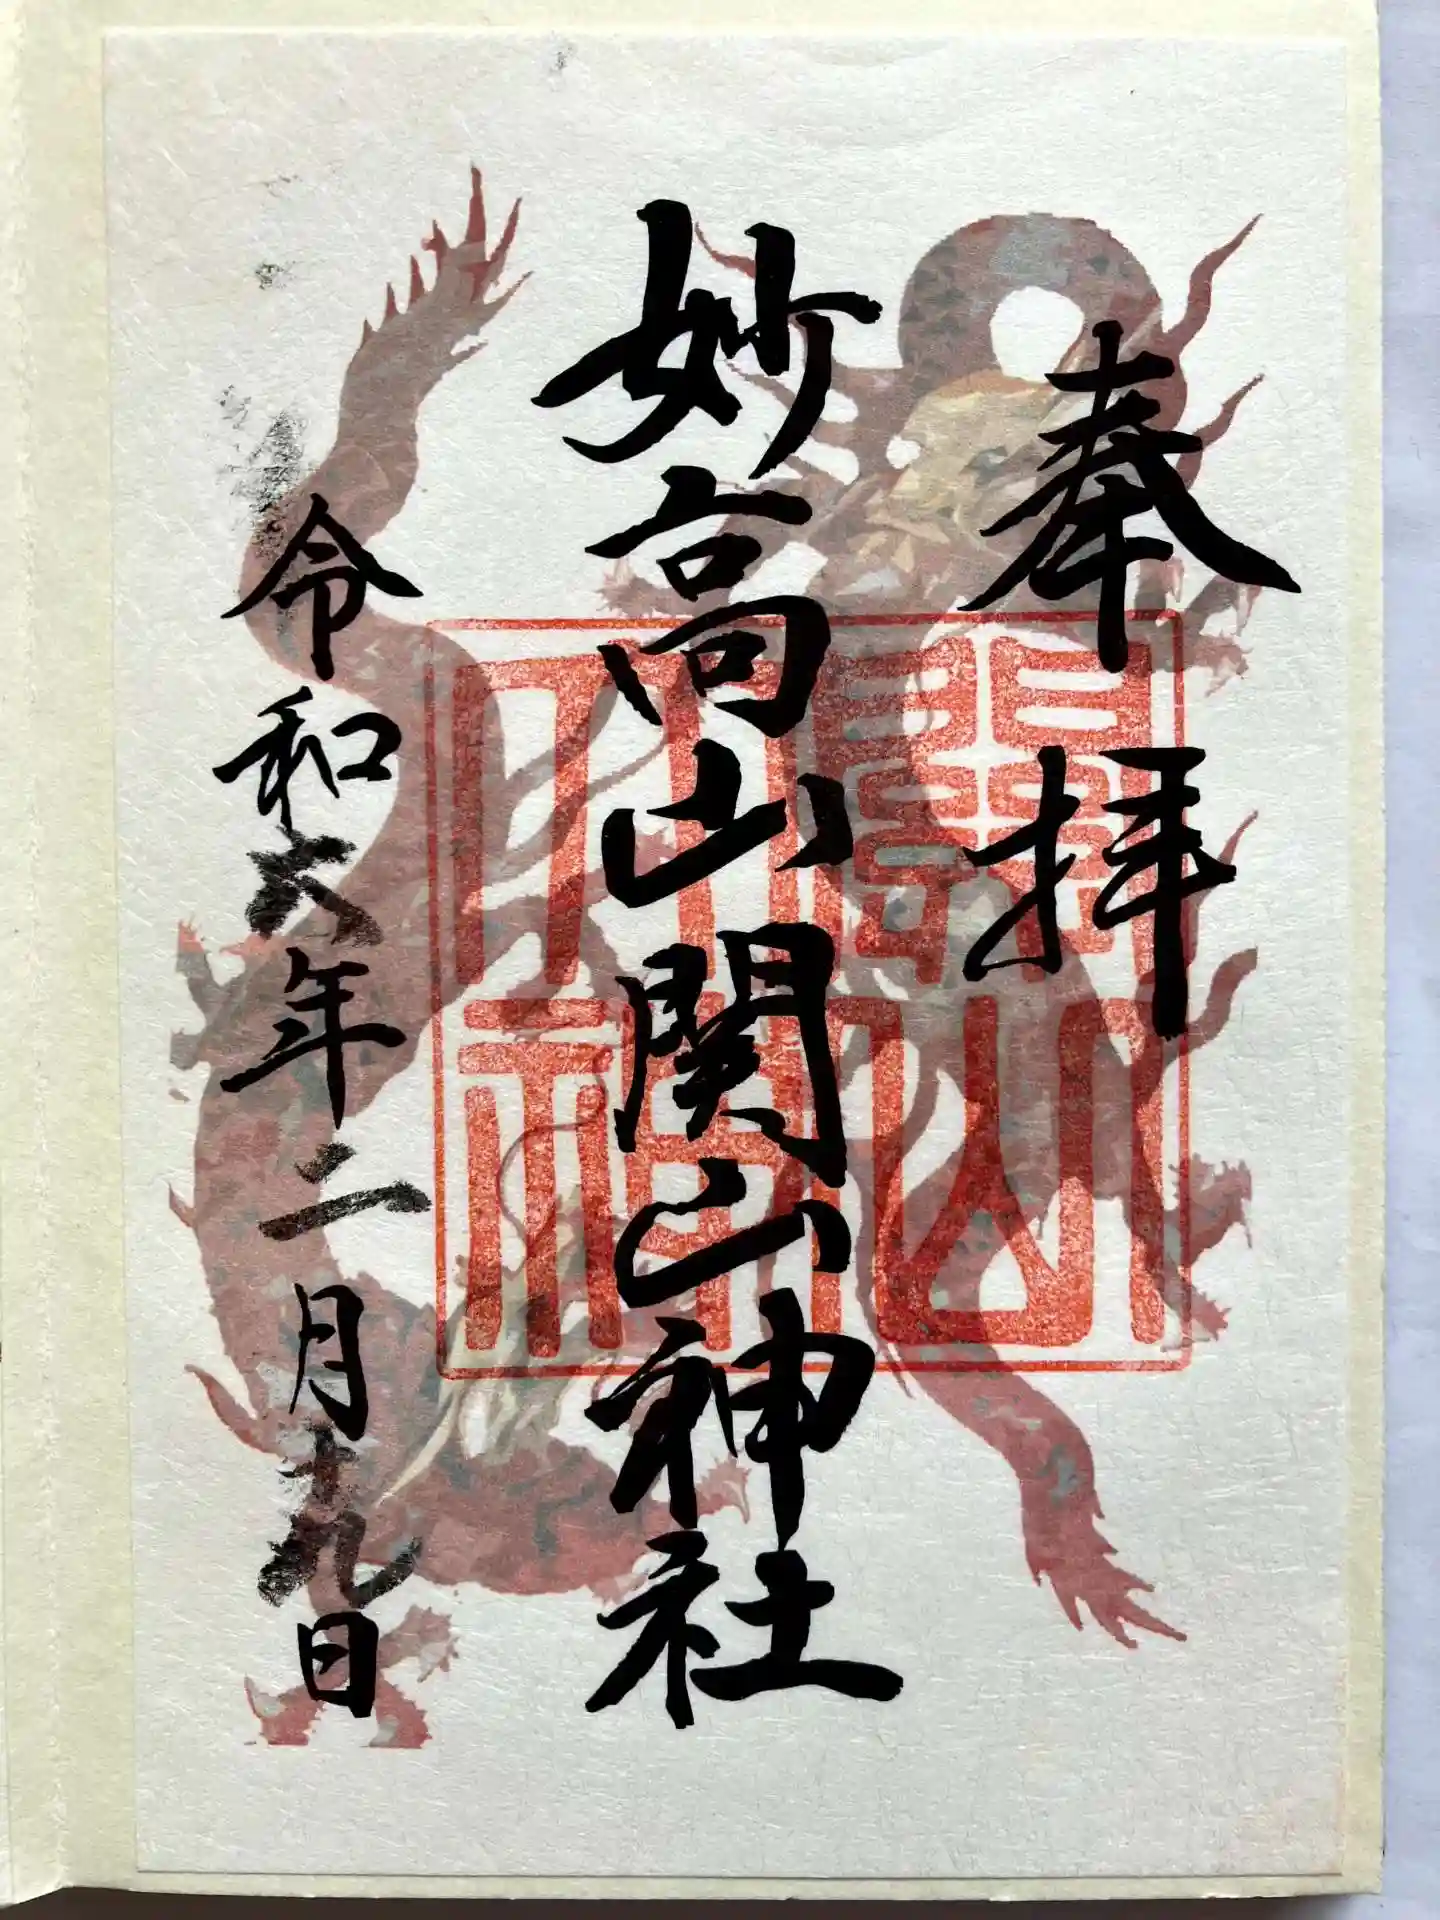 奉拝
妙高山関山神社
令和六年二月十九日
關山
神